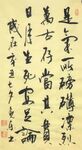 是氣所磅礴凜烈
萬古存當其貫
日月生死安足論